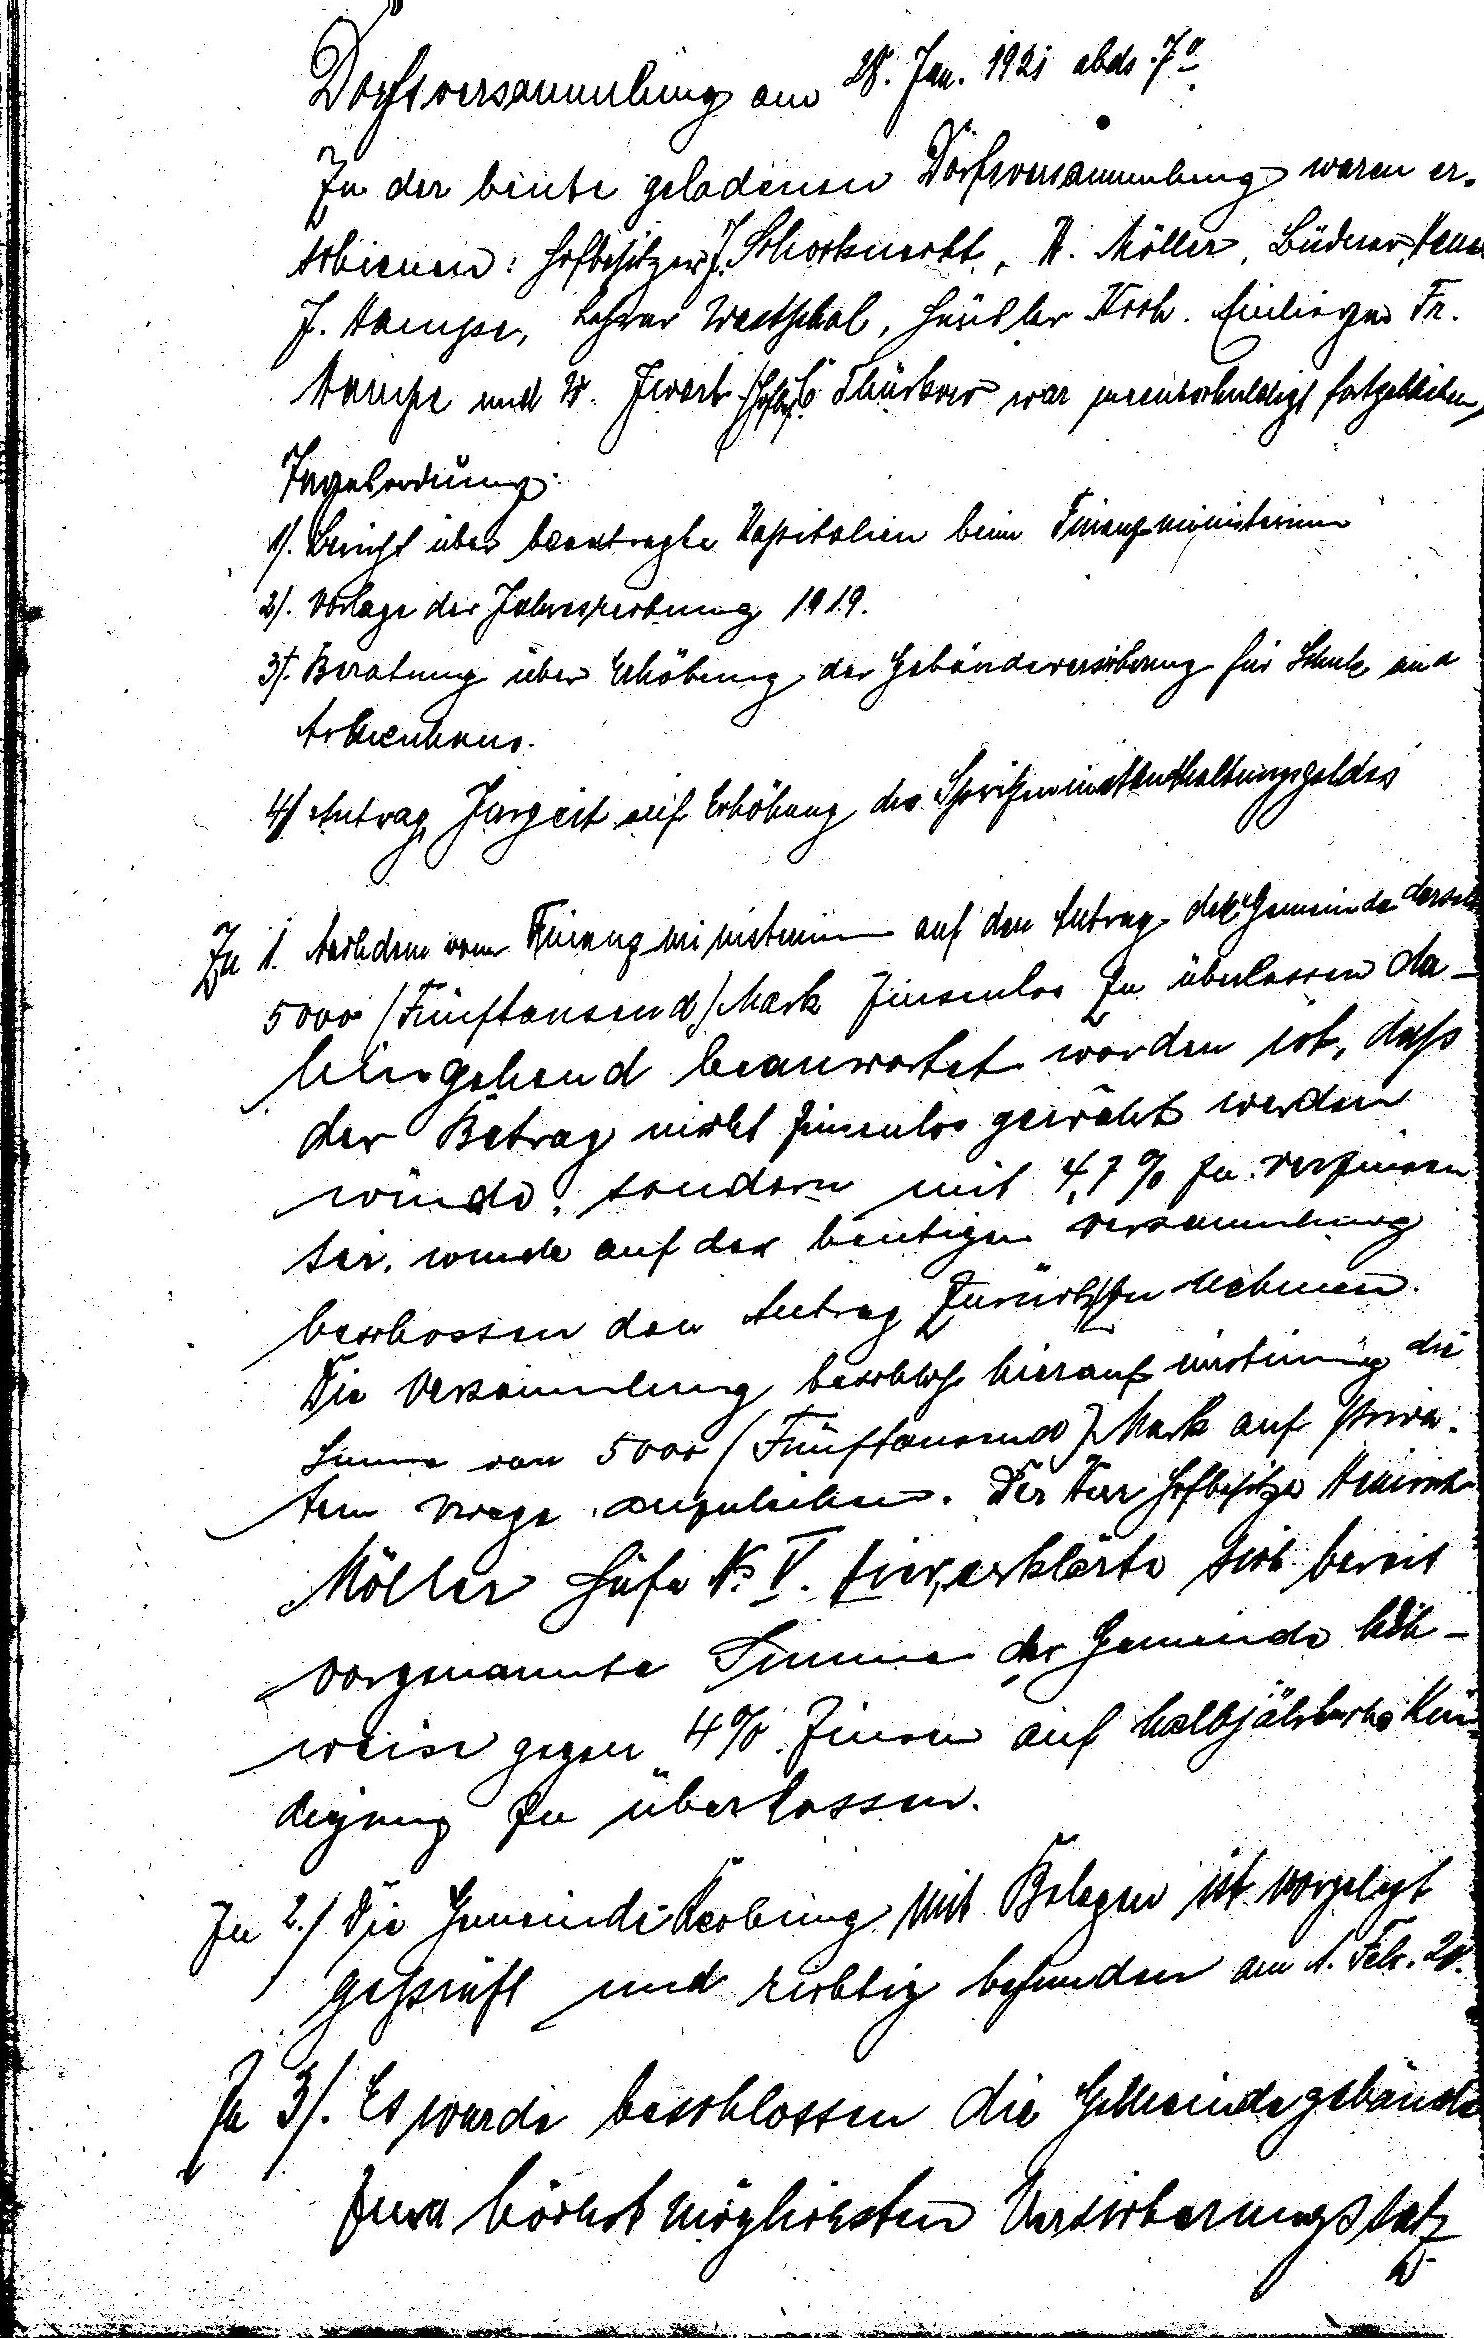 Dorfsversammlung am 28. Jan. 1921 abds. 7°
Zu der heute geladenen Dorfsversammlung waren er-
schienen: Hofbesitzer J. Schorknecht, H. Möller, Büdner
J. Hampe, Lehrer Westphal, Häusler Koch. Einlieger Fr.
Hampe und W. Jwert (Hofbes. Thürkow war unentschuldigt fortgeblieben)
Tagesordnung:
1). Bericht über beantragte Kapitalien beim Finanzministerium
2). Vorlage der Jahresrechnung 1919.
3). Beratung über Erhöhung der Gebäudeversicherung für Schule und
Armenhaus.
4) Antrag auf Erhöhung des
Zu 1. Nachdem vom Finanzministerium auf den Antrag der Gemeinde derselben
5000 (Fünftausend) Mark zinsenlos zu überlassen da-
hingehend beanwortet worden ist, dass
der Betrag nicht zinsenlos gewährt werden
würde, sondern mit 4,7 % zu verzinsen
sei, wurde auf der heutigen Versammlung
beschlossen den Antrag zurück zu nehmen.
Die Versammlung beschloss hierauf einstimig die
Summe von 5000 (Fünftausend) Mark auf priva-
tem Wege anzuleihen. Der Herr Hofbesitzer Heinrich
Möller Hufe No V. hier, erklärte sich bereit
vorgenannte Summe der Gemeinde leih-
weise gegen 4% Zinsen auf halbjährliche Kün-
digung zu überlassen.
Zu 2.) Die Gemeinde Rechnung mit Belegen ist vorgelegt
geprüft und richtig befunden am 1. Feb. 20.
Zu 3). Es wurde beschlossen die Gemeindegebäude
zum höchst möglichsten Versicherungssatz